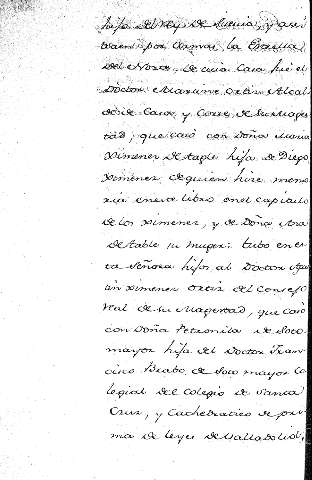 hija del Rey de Suecia, y assi
traen por Armas, la Estrella
del Norte. De una Casa fué el
Doctor Martin Ortiz Alcal
de de Casa, y Corte, de Su Mages
tad; que casó con Doña Maria
Ximenez de table hija de Diego
Ximenez, de quien hize memo
ria en este libro en el capitulo
de los Ximenez, y de Doña Ana
de table su muger: tubo en es
ta Señora hijos, al Doctor Agus
tin Ximenez Ortiz del Consejo
Real de su Magestad, que casó
con Doña Petronila de Soto
mayor hija del Doctor Fran
cisco Brabo, de Soto mayor Co
legial del Colegio de Santa
Cruz, y Cathedratico de pri
ma de leyes de Valladolid,